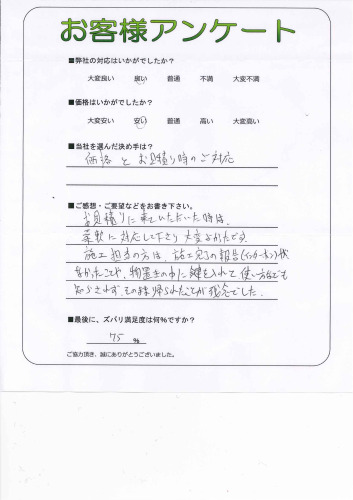 お客様アンケート
■弊社の対応はいかがでしたか?
大変良い 良い 普通 不満 大変不満
■価格はいかがでしたか?
大変安い 安い 普通 高い 大変高い
■当社を選んだ決め手は?
価格とお見積り時のご対応
■ご感想・ご要望などをお書き下さい。
お見積りに来ていただいた時は、
柔軟に対応して下さり大変よかったです。
施工担当の方は、施工完了の報告(インターホン)が
なかったことや、物置の中に鍵を入れて使い方なども
知らされず、その後帰られたことが残念でした。
■最後に、ズバリ満足度は何%ですか?
75 %
ご協力頂き、誠にありがとうございました。